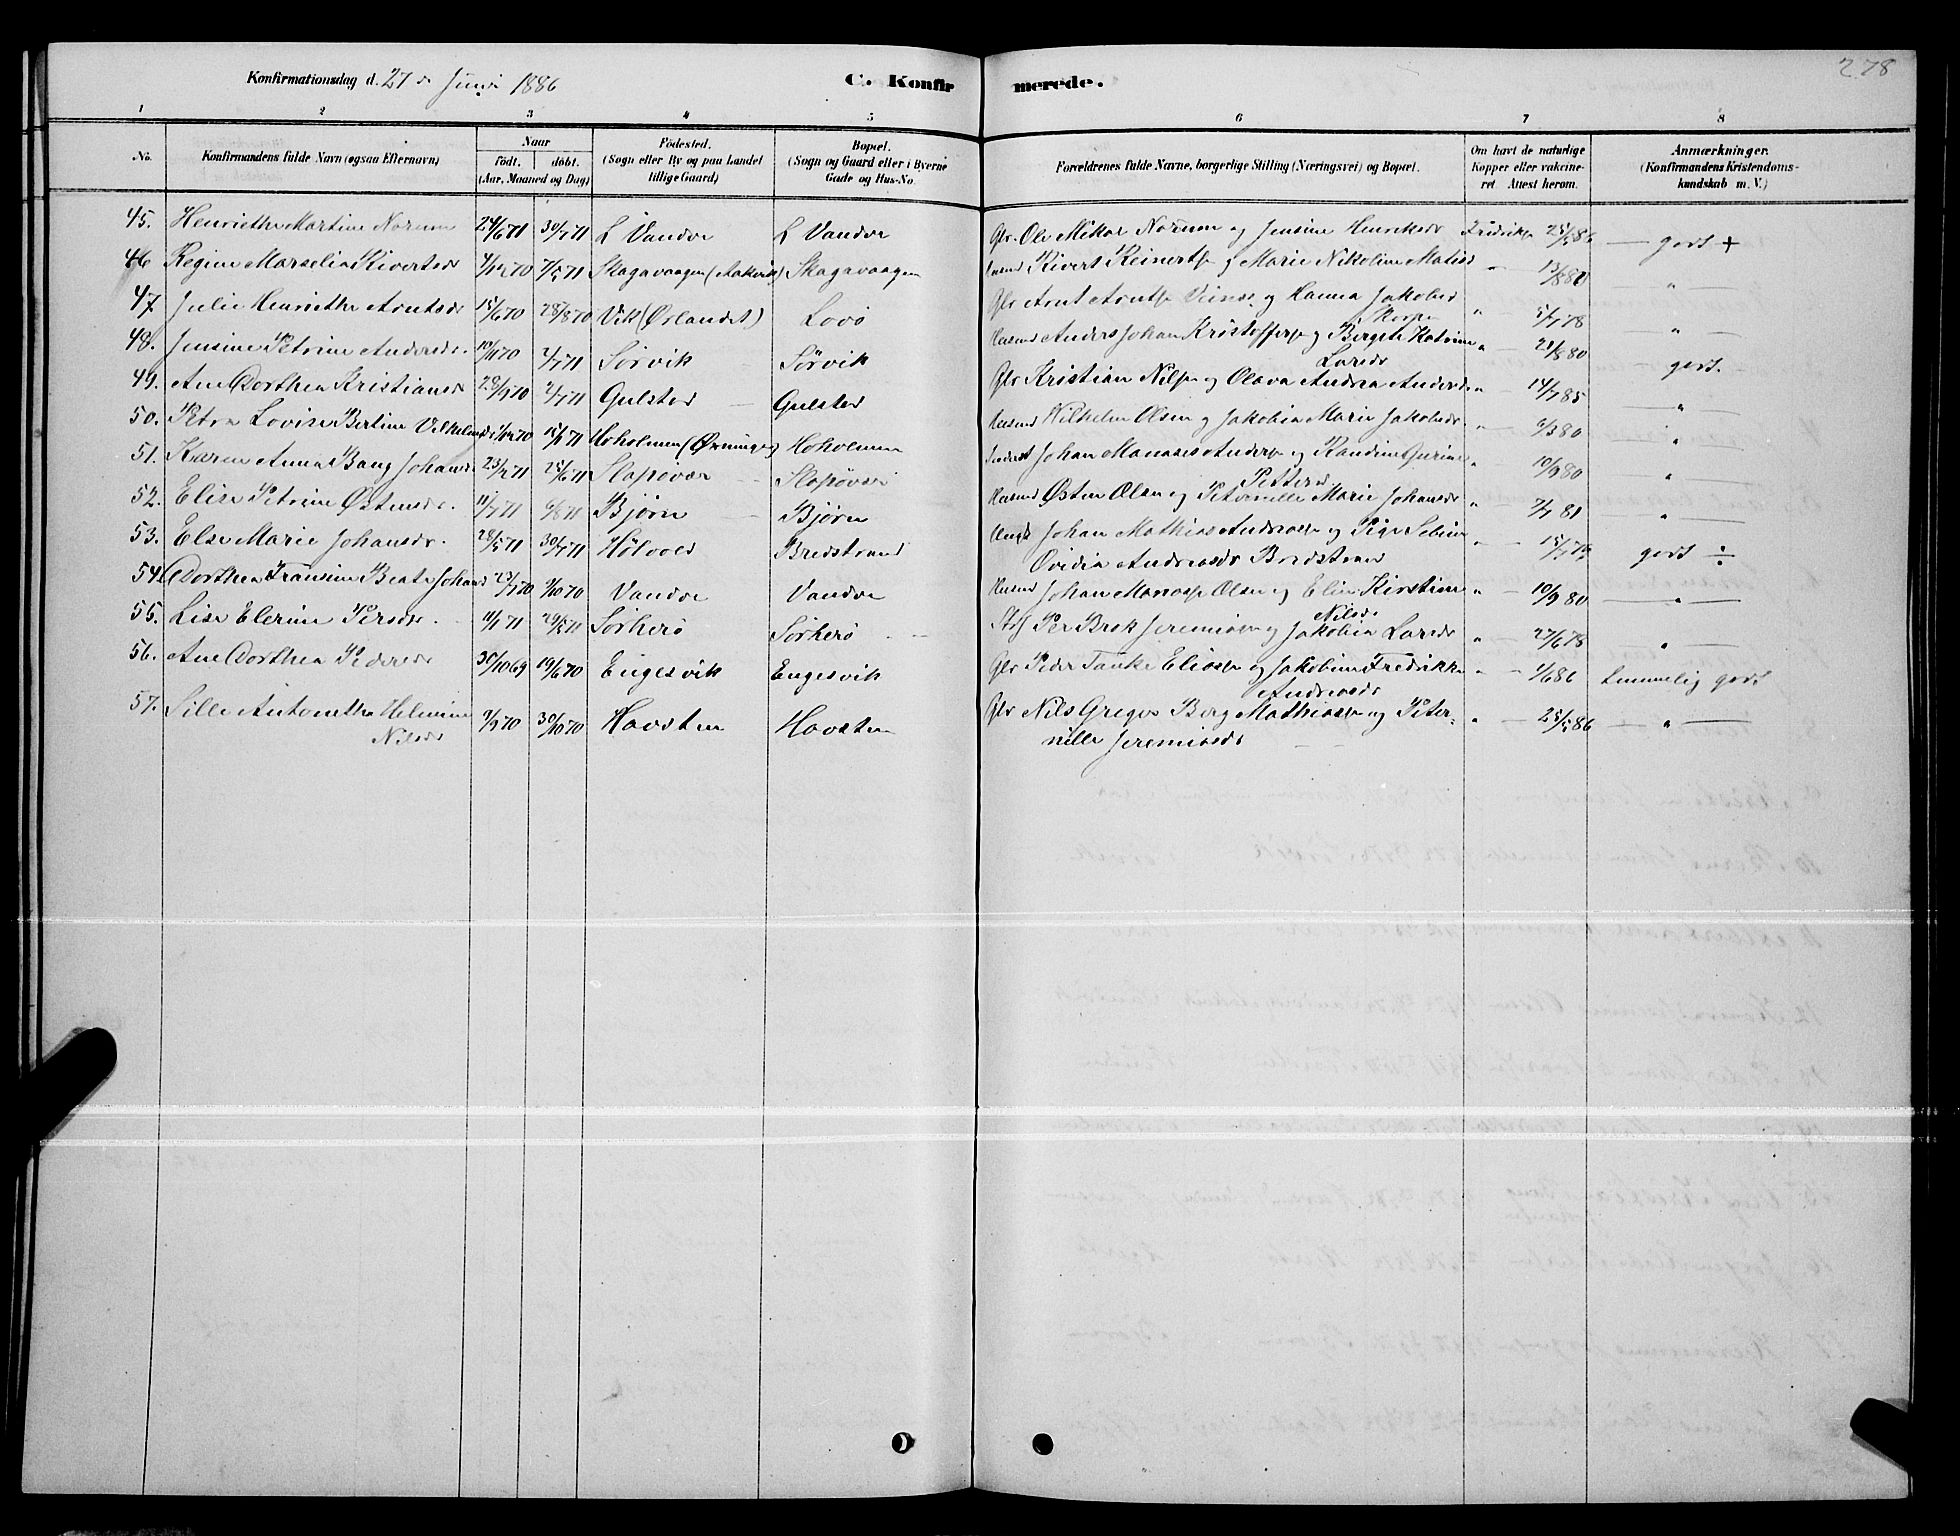 Konfirmationsdag d. 27de Juni 1886
C. Konfirmerede.
278
1 2 3 4 5 6 7 8
No. Konfirmandens fulde Navn (ogsaa Efternavn) Naar født. døbt. (Aar, Maaned og Dag) Fødested. (Sogn eller By og paa Landet tillige Gaard) Bopæl. (Sogn og Gaard eller i Byerne Gade og Hus-No. Forældrenes fulde Navne, borgerlige Stilling (Næringsvei) og Bopæl. Om havt de naturlige Kopper eller vakcineret. Attest herom. Anmærkninger. (Konfirmandens Kristendomskundskab m. V.)
45. Henriethe Martine Norum 24/6 71 30/7 71 L Vandvæ L Vandvæ Gbr. Ole Mikar Norum og Jensine Henriksdr Fredriks 25/5 86 — godt +
46 Regine Marselia Kivertsdr 4/12 70 7/5 71 Skagavaagen (Aakvik) Skagavaagen Husmd Kivert Reinertsen og Marie Nikoline Matisdr " 13/8 80 "
47. Julie Henriethe Arntsdr 15/6 70 28/8 70 Vik (Ørlandet) Lovø Gbr Arnt Arntsen og Hanna Jakobsdr " 5/7 78 "
48. Jensine Petrine Andersdr. 10/11 70 2/7 71 Sørvik Sørvik Husmd Anders Johan Kristoffersen og Bergete Katrine Larsdr " 21/8 80 — godt. —
49. Ane Dorthea Kristiansdr 28/9 70 2/7 71 Gulstad Gulstad Gbr Kristian Nilsen og Olava Andrea Andersdr " 14/7 85 "
50. Petra Lovise Bertine Vilhelmsdr 1/12 70 15/1 71 Hoholmen (Ørninger) Hoholmen Husmd Wilhelm Olsen og Jakobia Marie Jakobsdr. " 6/3 80 "
51. Karen Anna Bang Johansdr 23/2 71 25/6 71 Slapøvær Slapøvær Inderst Johan Manases Andersen og Randine Gurine Pettersdr " 10/9 80 "
52. Elise Petrine Østensdr. 11/7 71 6/8 71 Bjørn Bjørn Husmd Østen Olsen og Peternille Marie Johansdr " 7/7 81 "
53. Else Marie Johansdr. 28/5 71 30/7 71 Hølvold Bredstrand Ungk Johan Mathias Andreasen og Pige Sebine Ovidia Andreasdr Bredstrand " godt ÷
54 Dorthea Fransine Beate Johansd 23/7 70 9/10 70 Vandvæ Vandvæ Husmd Johan Manasse Olsen og Elen Kirstine Nilsdr " 10/9 80 "
55. Lise Elerine Persdr. 11/1 71 29/5 71 Sørherø Sørherø Per Brok Jeremiasen og Jakobia Larsdr " 27/6 78 "
56. Ane Dorthea Pedersdr 30/10 69 19/6 70 Engesvik Engesvik Gbr Peder Tanke Eliasen og Jakobine Fredrikke Andreasdr " 1/6 86 temmelig godt
57. Sille Antonetha Helmine Nilsdr 9/9 70 30/10 70 Havsten Havsten Gbr Nils Greger Borg Mathiasen og Peternille Jeremiasdr " 25/5 86 "